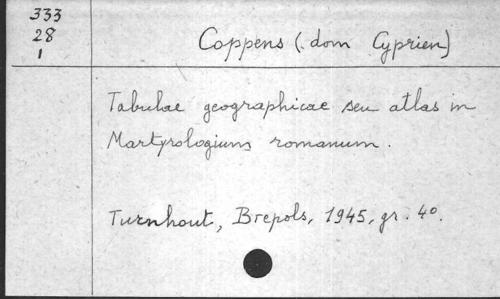 333
28
1
Coppens (dom Cyprien)
Tabulae geographicae seu atlas in
Martyrologium romanum.
Turnhout, Brepols, 1945, gr. 4o.